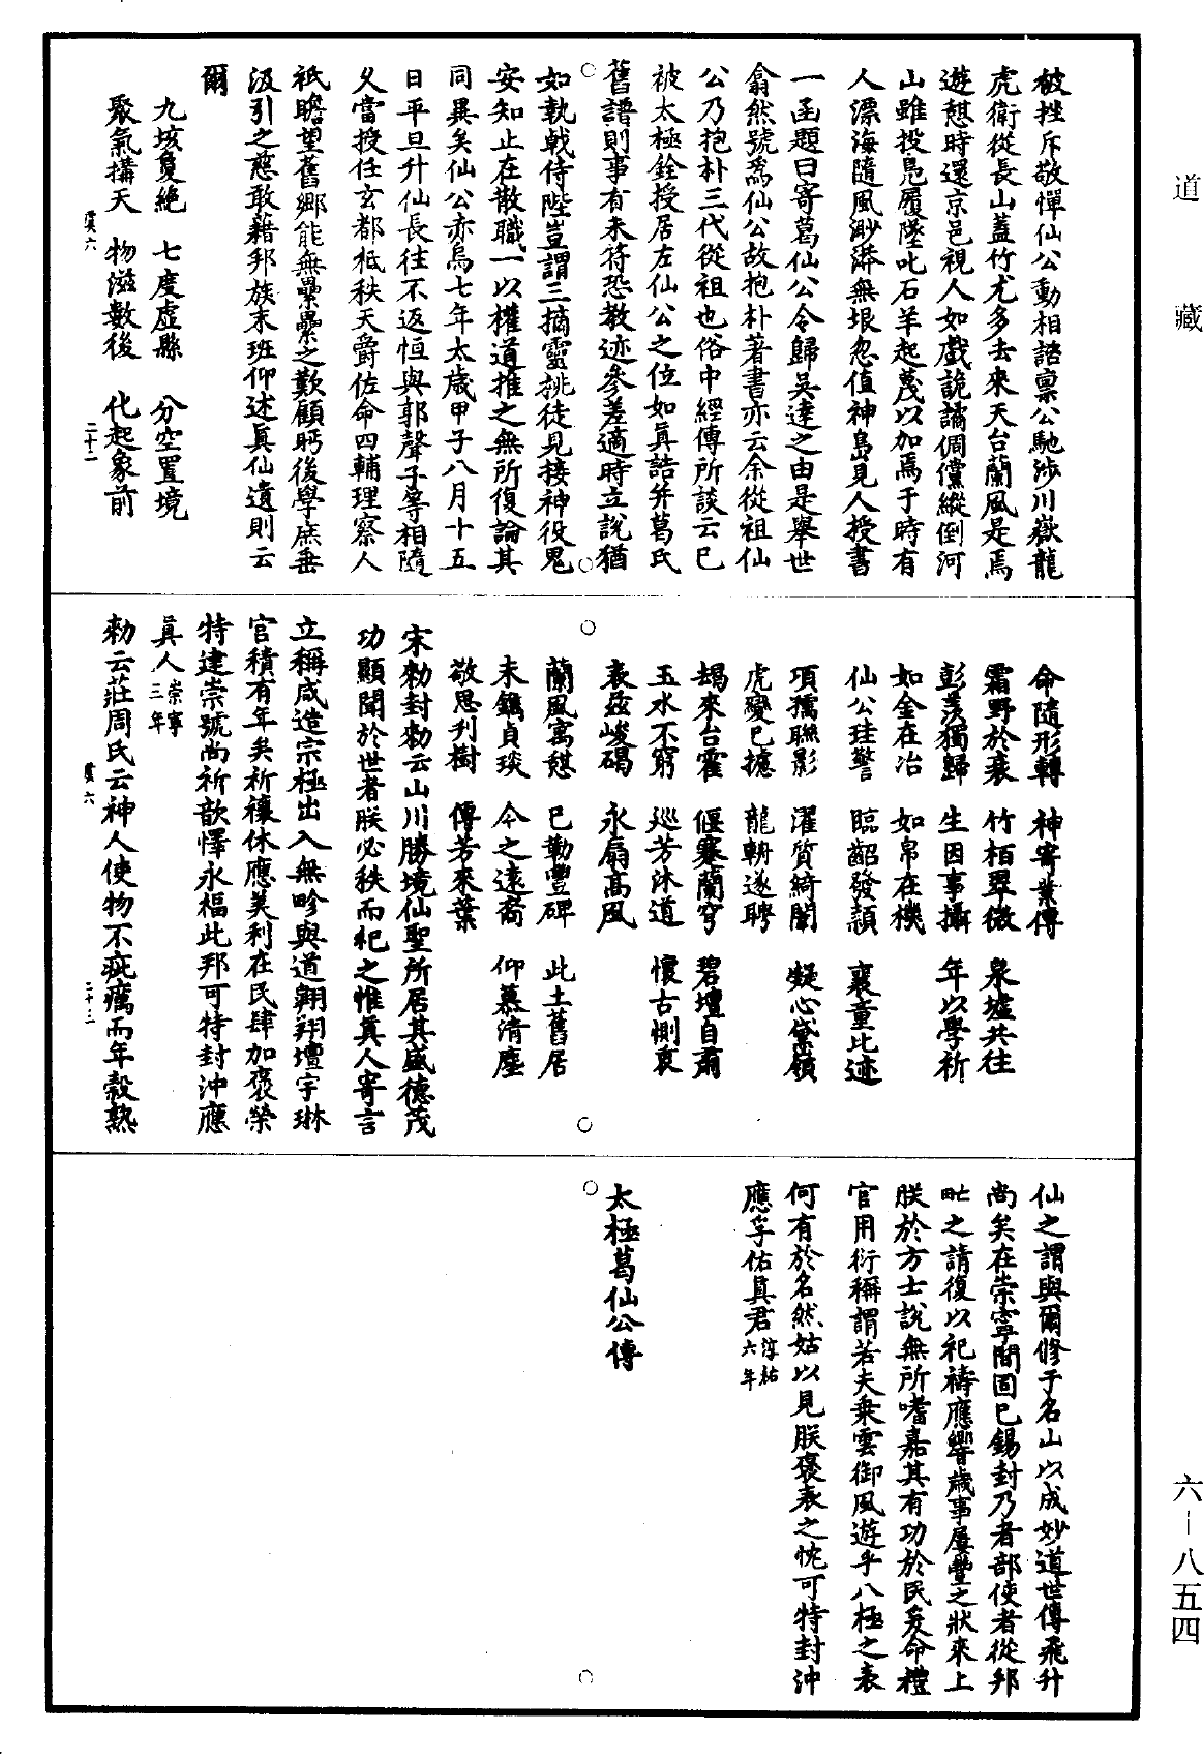 道藏
被挫斥敬憚仙公動相諮稟公馳涉川嶽龍
虎衛從長山蓋竹尤多去來天台蘭風是焉
遊憩時還京邑視人如戲詭譎倜儻縱倒河
山雖投鳧履墜叱石羊起蔑以加焉于時有
人漂海隨風渺漭無垠忽值神島見人授書
一函題曰寄葛仙公令歸吳達之由是舉世
翕然號爲仙公故抱朴著書亦云余從祖仙
公乃抱朴三代從祖也俗中經傳所談云已
被太極銓授居左仙公之位如眞誥并葛氏
舊譜則事有未符恐教迹參差適時立說猶
如執戟侍陛豈謂三摘靈挑徒見接神役鬼
安知止在散職一以權道推之無所復論其
同異矣仙公赤烏七年太歲甲子八月十五
日平旦升仙長往不返恒與郭聲子等相隨
久當授任玄都祗秩天爵佐命四輔理察人
祇瞻望舊鄉能無纍纍之歎顧眄後學庶垂
汲引之慈敢藉邦族末班仰述眞仙遺則云
爾
九垓敻絶　七度虛縣　分空置境
聚氣構天　物滋數後　化起象前
虞六　二十二
命隨形轉　神寄業傳
霜野於衰　竹栢翠微　泉壚共往
彭羨獨歸　生因事攝　年以學祈
如金在冶　如帛在機
仙公珪警　臨齠發穎　襄童比迹
項孺聯影　濯質綺闈　凝心黛嶺
虎變已攄　龍軿遂聘
朅來台霍　偃蹇蘭穹　碧壇自肅
玉水不窮　巡芳沐道　懷古惻衷
表茲峻碣　永扇高風
蘭風寓憩　已勒豐碑　此土舊居
未鐫貞琰　今之遠裔　仰慕清塵
敬思刋樹　傳芳來葉
宋勑封勑云山川勝境仙聖所居其盛德茂
功顯聞於世者朕必秩而祀之惟眞人寄言
立稱咸造宗極出入無畛與道翱翔壇宇琳
官積有年矣祈禳休應美利在民肆加褒榮
特建崇號尚祈歆懌永福此邦可特封沖應
眞人崇寧三年
勑云莊周氏云神人使物不疵癘而年穀熟
虞六　二十三
仙之謂與爾修于名山以成妙道世傳飛升
尚矣在崇寧間固已錫封乃者部使者從邦
甿之請復以祀禱應響歲事屢豐之狀來上
朕於方士說無所嗜嘉其有功於民爰命禮
官用衍稱謂若夫乗雲御風遊乎八極之表
何有於名然姑以見朕褒表之忱可特封沖
應孚佑眞君淳祐六年
太極葛仙公傳
六－八五四